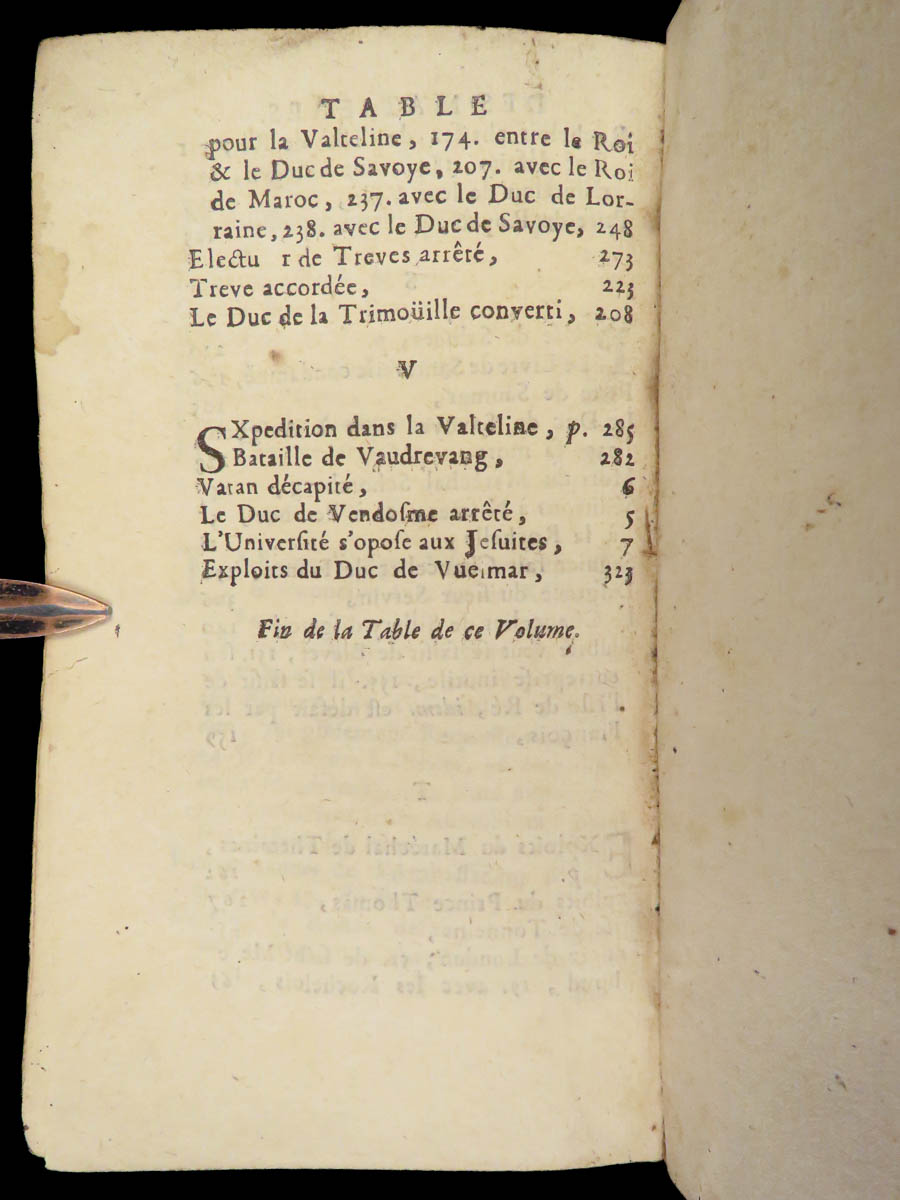 TABLE
pour la Valteline, 174. entre le Roi
& le Duc de Savoye, 207. avec le Roi
de Maroc, 237. avec le Duc de Lor-
raine, 238. avec le Duc de Savoye, 248
Electu r de Treves arrêté, 273
Treve accordée, 223
Le Duc de la Trimoüille converti, 208
V
SXpedition dans la Valteline, p. 285
Bataille de Vaudrevang, 282
Vatan décapité, 6
Le Duc de Vendoſme arrêté, 5
L'Univerſité s'opoſe aux Jeſuites, 7
Exploits du Duc de Vueimar, 323
Fin de la Table de ce Volume.